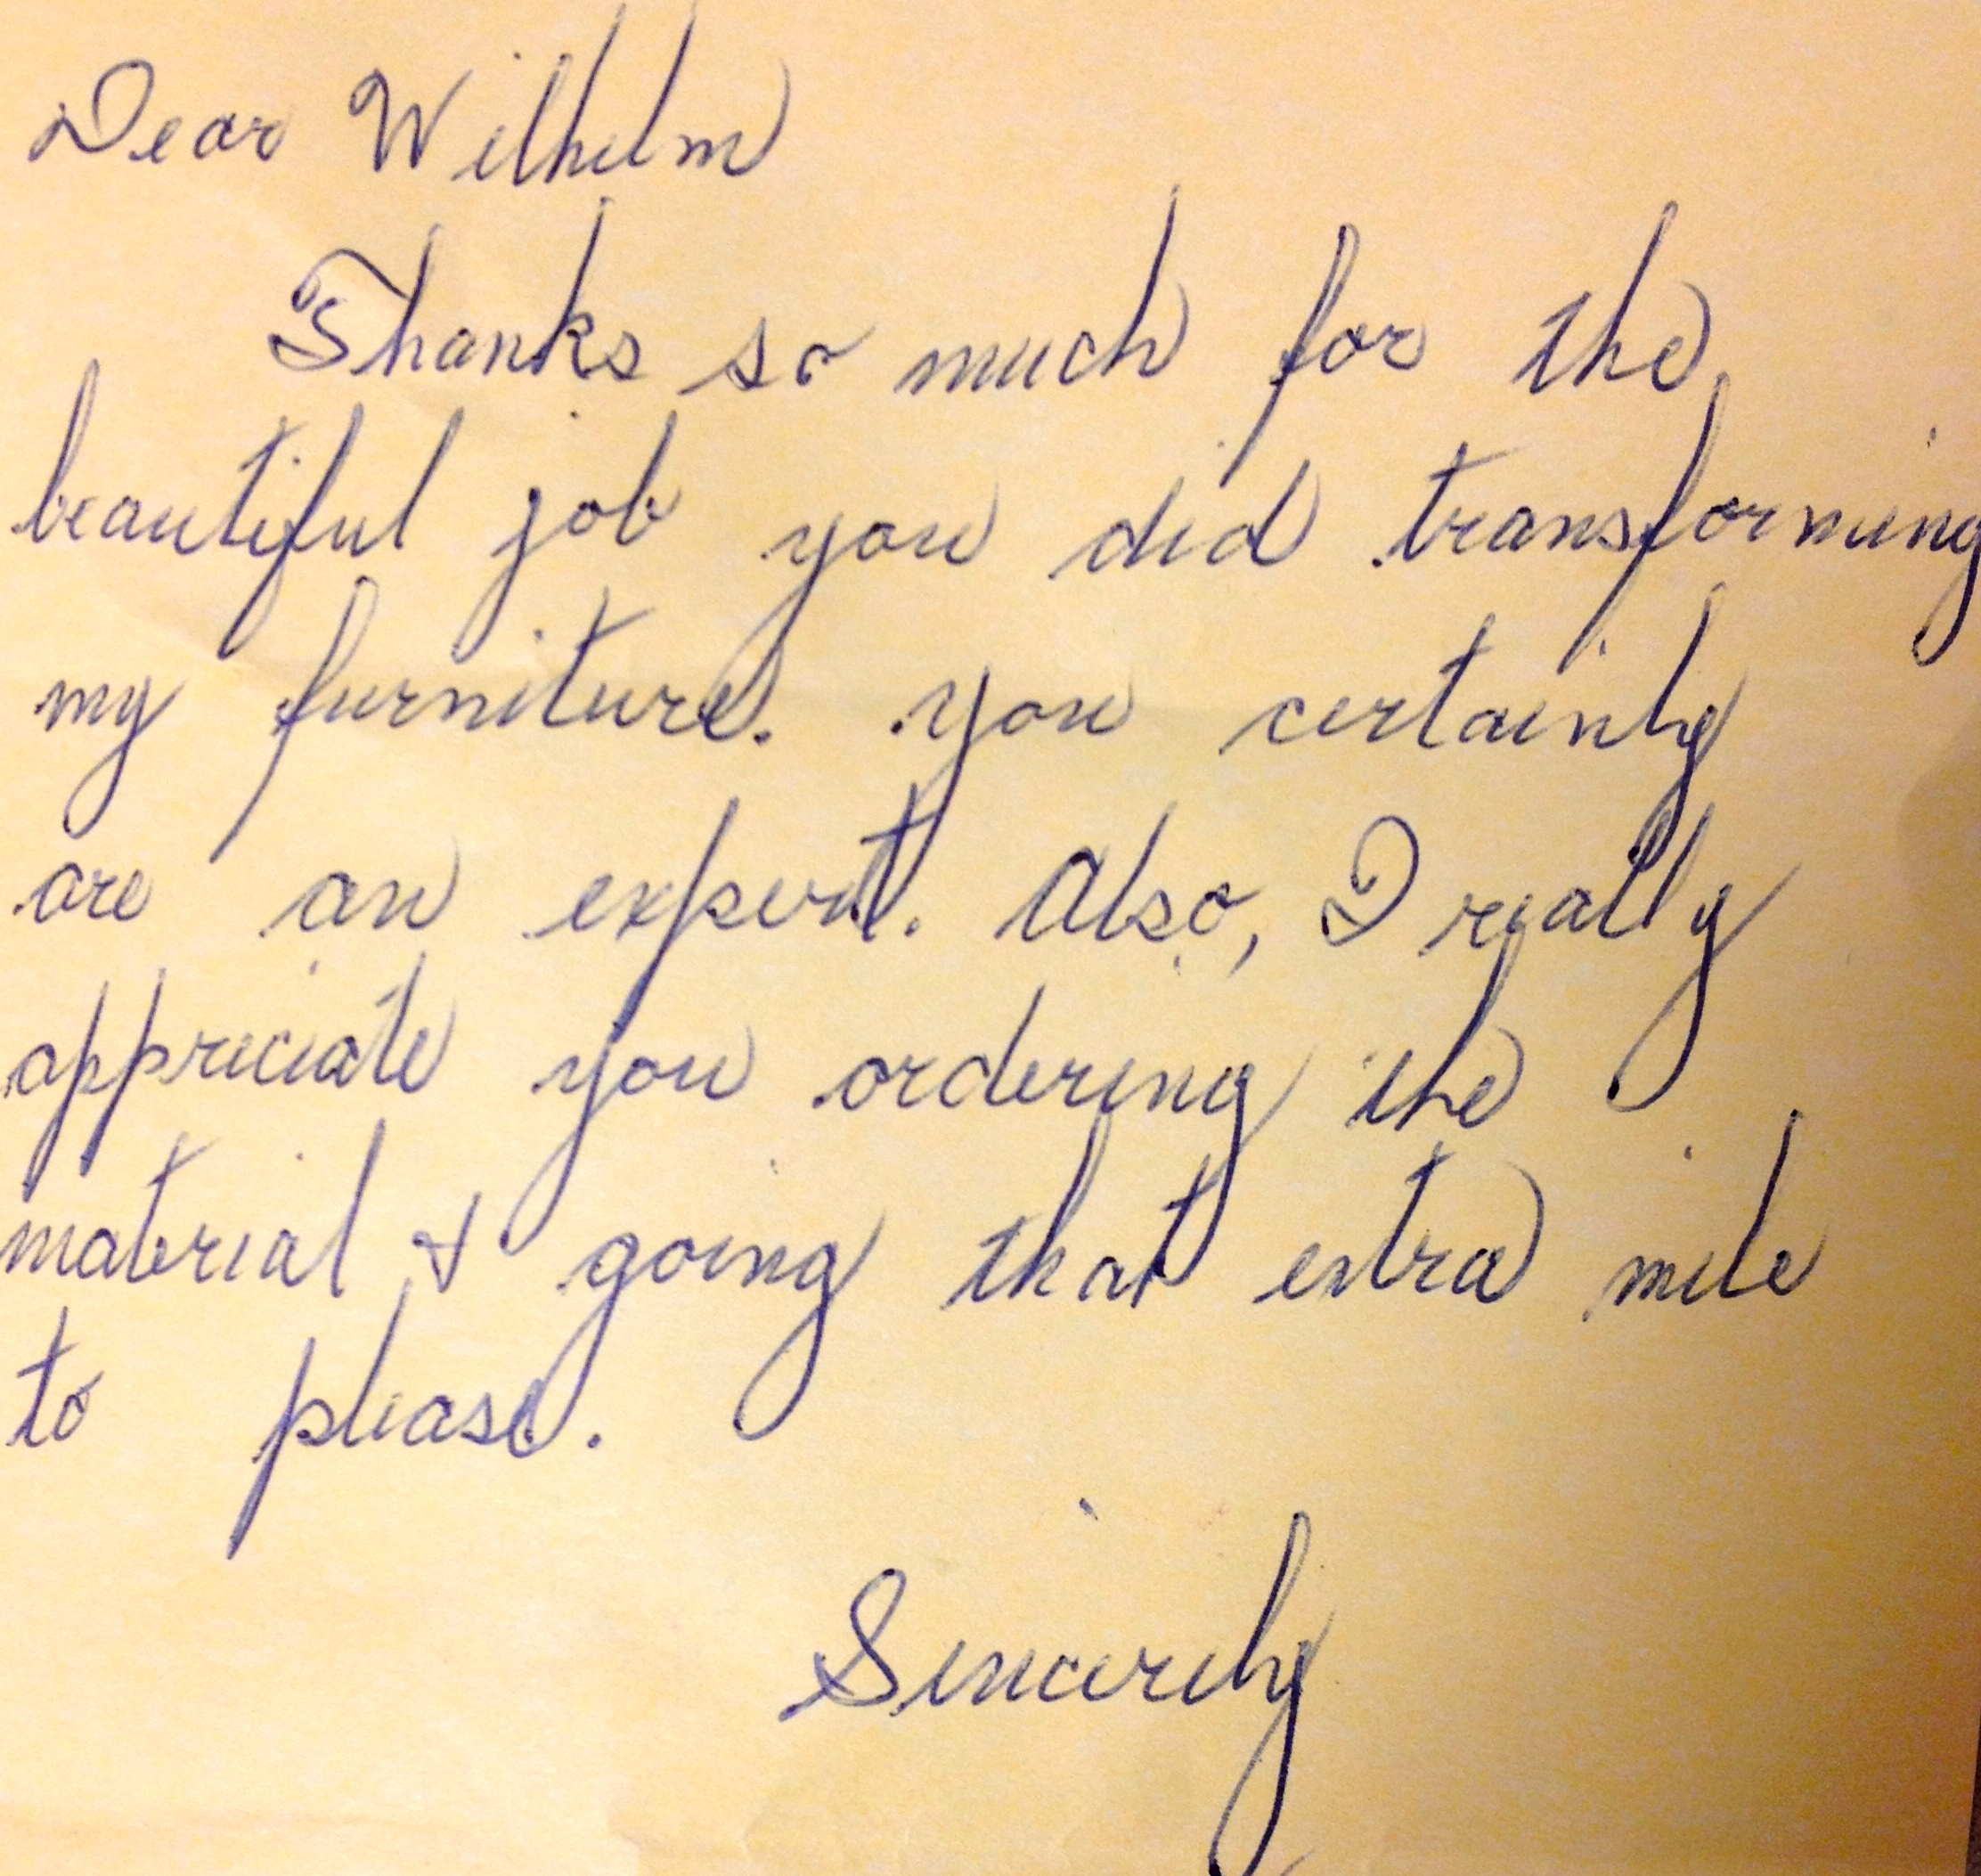 Dear Wilhelm
Thanks so much for the
beautiful job you did transforming
my furniture. You certainly
are an expert. Also, I really
appreciate you ordering the
material & going that extra mile
to please.
Sincerely